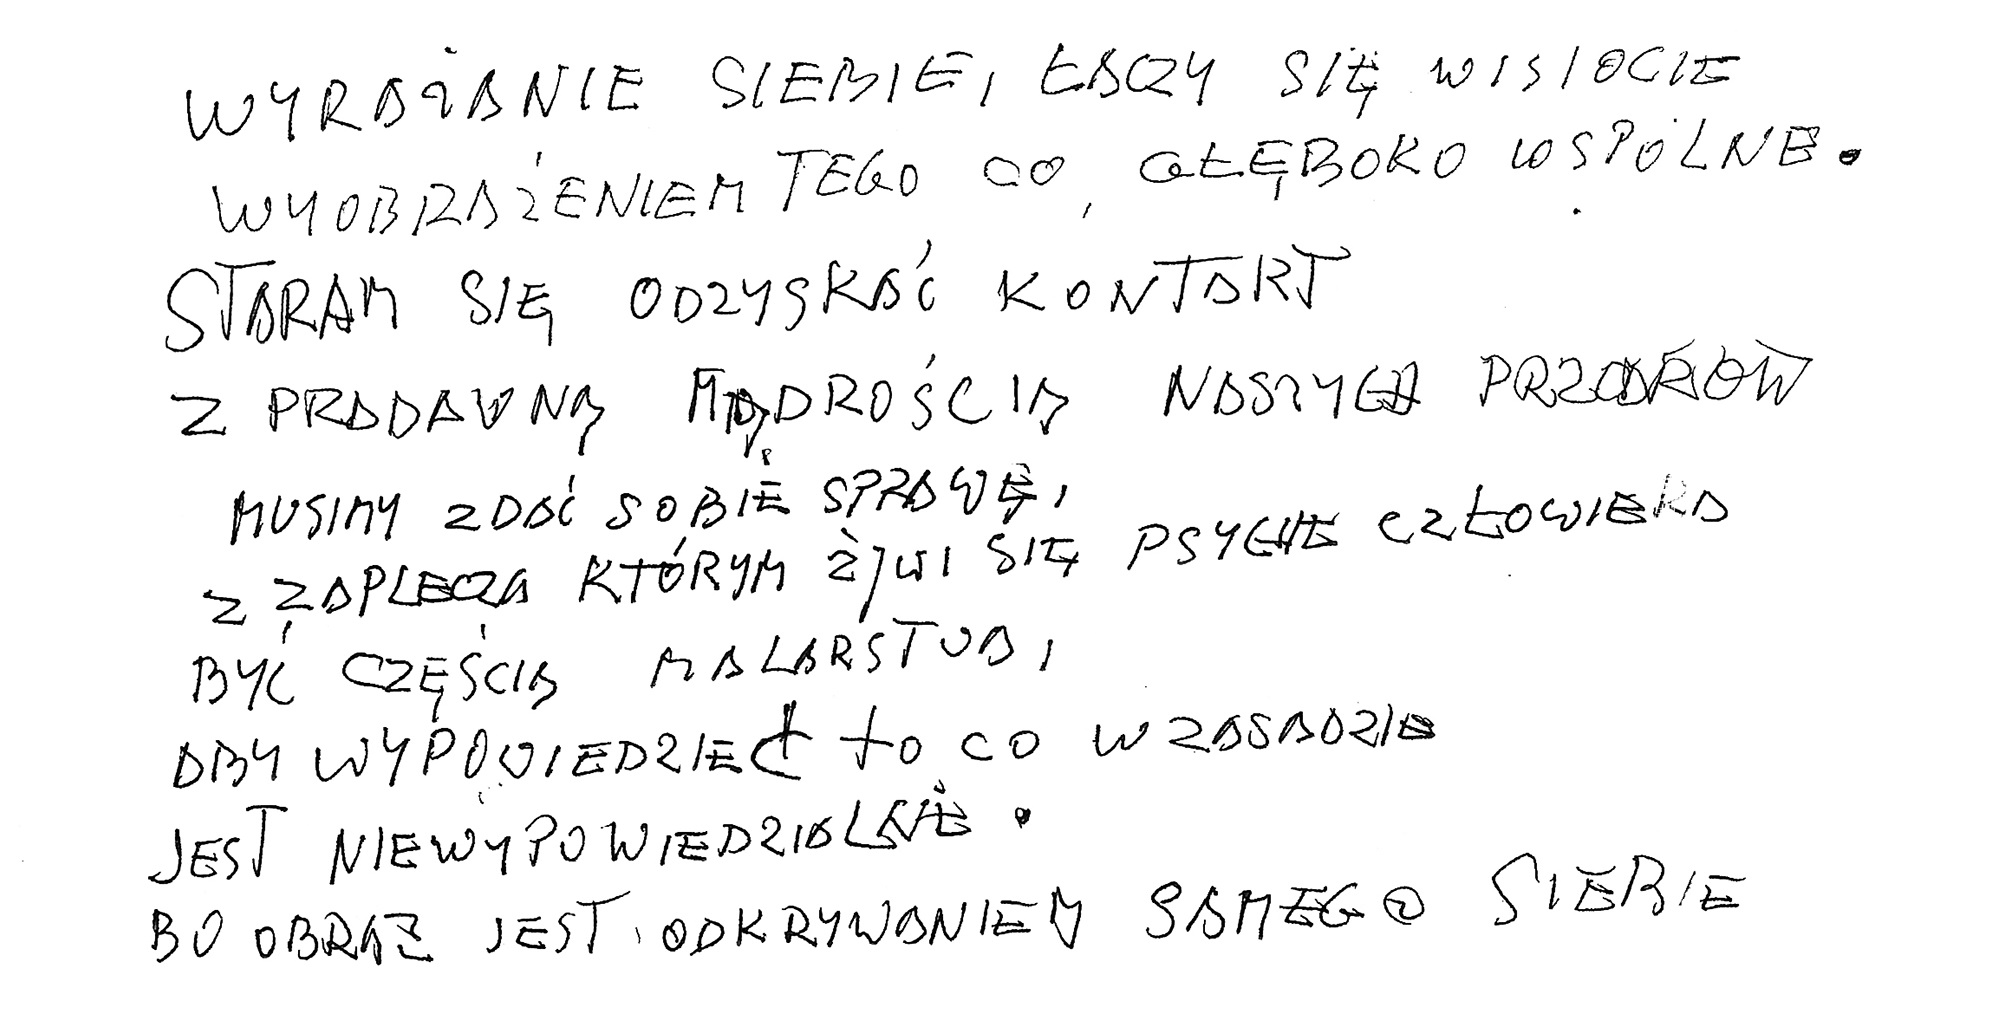 WYRAŻANIE SIEBIE, ŁACZY SIĘ W ISIOCIE
WYOBRAŻENIEM TEGO CO, GŁĘBOKO WSPÓLNE.
STARAM SIĘ ODZYSKAĆ KONTAKT
Z PRADAWNĄ MĄDROŚCIĄ NASZYCH PRZODKÓW
MUSIMY ZDAĆ SOBIE SPRAWĘ,
Z ZAPLECZA KTÓRYM ŻYWI SIĘ PSYCHE CZŁOWIEKA
BYĆ CZĘŚCIĄ MALARSTWA,
ABY WYPOWIEDZIEĆ TO CO W ZASADZIE
JEST NIEWYPOWIEDZIALNE.
BO OBRAZ JEST ODKRYWANIEM SAMEGO SIEBIE